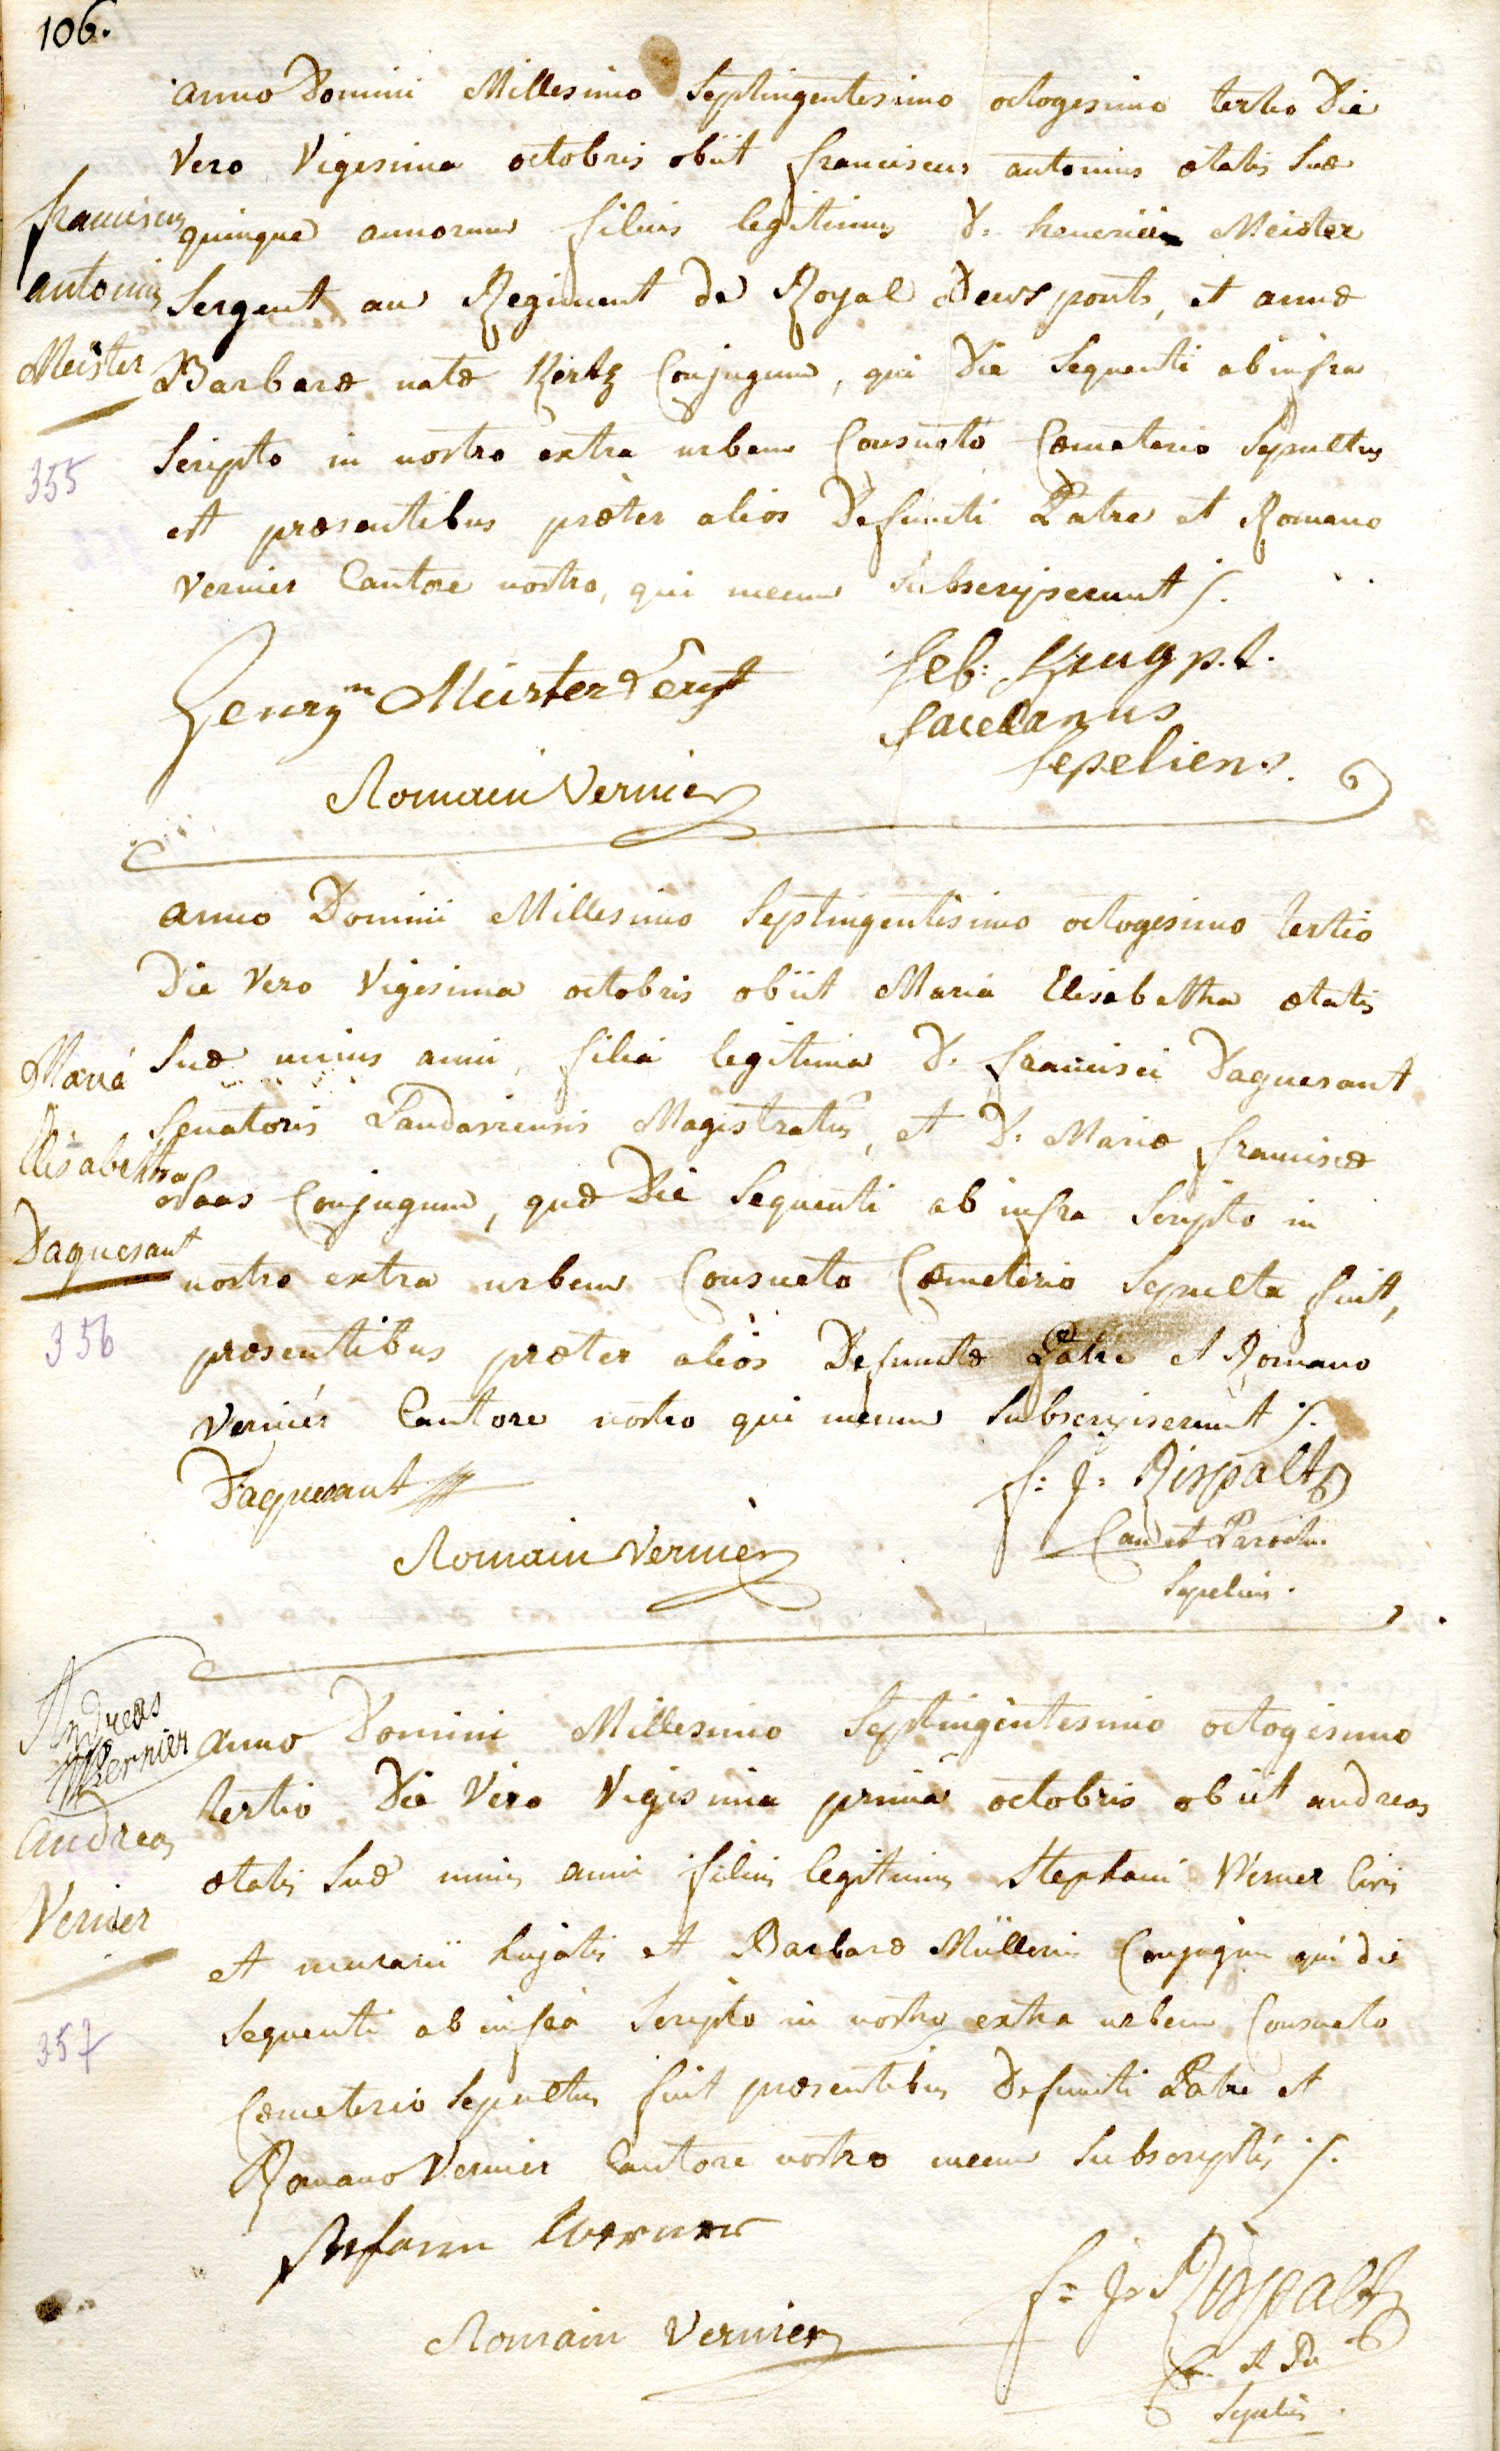 106.
anno Domini Millesimo Septingentesimo octogesimo tertio Die
Vero Vigesima octobris obiit franciscus antonius ætatis Suæ
franciscus
quinque annorum filius legitimus D. henerici Meister
antonius
Sergent au Regiment de Royal Deux ponts, et annæ
Meister
Barbaræ natæ Kertz Conjugum, qui Die Sequenti ab infra
355
Scripto in nostro extra urbem Consueto Cœmeterio Sepultus
est præsentibus præter alios Defuncti Patre et Romano
Vernier Cantore nostro, qui mecum Subscripserunt /.
Henry Meister Sergt
Seb: Krug p.t.
Sacellanus
Sepeliens.
Romain Vernier
anno Domini Millesimo Septingentesimo octogesimo tertio
Die Vero Vigesima octobris obiit Maria Elisabetha ætatis
Maria
Suæ unius anni, filia legitima D. francisci Daquesant
Senatoris Landaviensis Magistratus, et D. Mariæ franciscæ
Elisabetha
Haas Conjugum, quæ Die Sequenti ab infra Scripto in
Daquesant
nostro extra urbem Consueto Cœmeterio Sepulta fuit,
356
præsentibus præter alios Defunctæ Patre et Romano
Vernier Cantore nostro qui mecum Subscripserunt /.
Daquesant
f: J: Rispalt
Can et Parochus
Sepeliens.
Romain Vernier
Andreas
Wernier
anno Domini Millesimo Septingentesimo octogesimo
tertio Die Vero Vigesima prima octobris obiit andreas
andreas
ætatis Suæ unius anni filius legitimus Stephani Werner Civis
Vernier
et murarii hujatis et Barbaræ Müllerin Conjugum qui die
Sequenti ab infra Scripto in nostro extra urbem Consueto
357
Cœmeterio Sepultus fuit præsentibus Defuncti Patre et
Romano Vernier Cantore nostro mecum Subscriptis /.
Stefann Werner
f: J: Rispalt
C. et Pa
Sepeliens.
Romain Vernier